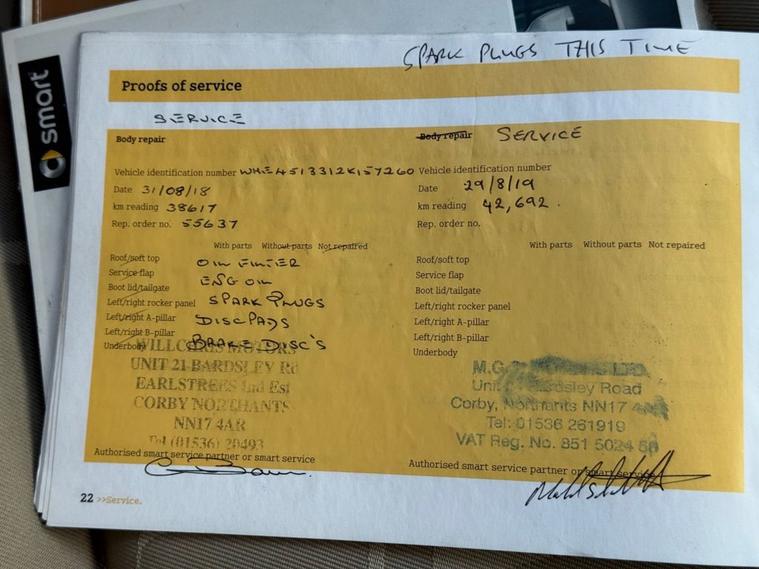 smart
SPARK PLUGS THIS TIME
Proofs of service
SERVICE
Body repair
Vehicle identification number WME4513312K157260
Date 31/08/18
km reading 38617
Rep. order no. 55637
With parts Without parts Not repaired
Roof/soft top OIL FILTER
Service flap ENG OIL
Boot lid/tailgate
Left/right rocker panel SPARK PLUGS
Left/right A-pillar DISC PADS
Left/right B-pillar
Underbody BRAKE DISC'S
MOTORS
UNIT 21 BARDSLEY Rd
EARLSTREES Ind Est
CORBY NORTHANTS
NN17 4AR
Tel (01536) 20493
Authorised smart service partner or smart service
Body repair SERVICE
Vehicle identification number
Date 29/8/19
km reading 42,692.
Rep. order no.
With parts Without parts Not repaired
Roof/soft top
Service flap
Boot lid/tailgate
Left/right rocker panel
Left/right A-pillar
Left/right B-pillar
Underbody
M.G. LTD.
Unit Bardsley Road
Corby, Northants NN17
Tel: 01536 261919
VAT Reg. No. 851 5024 58
Authorised smart service partner or smart service
22 >>Service.